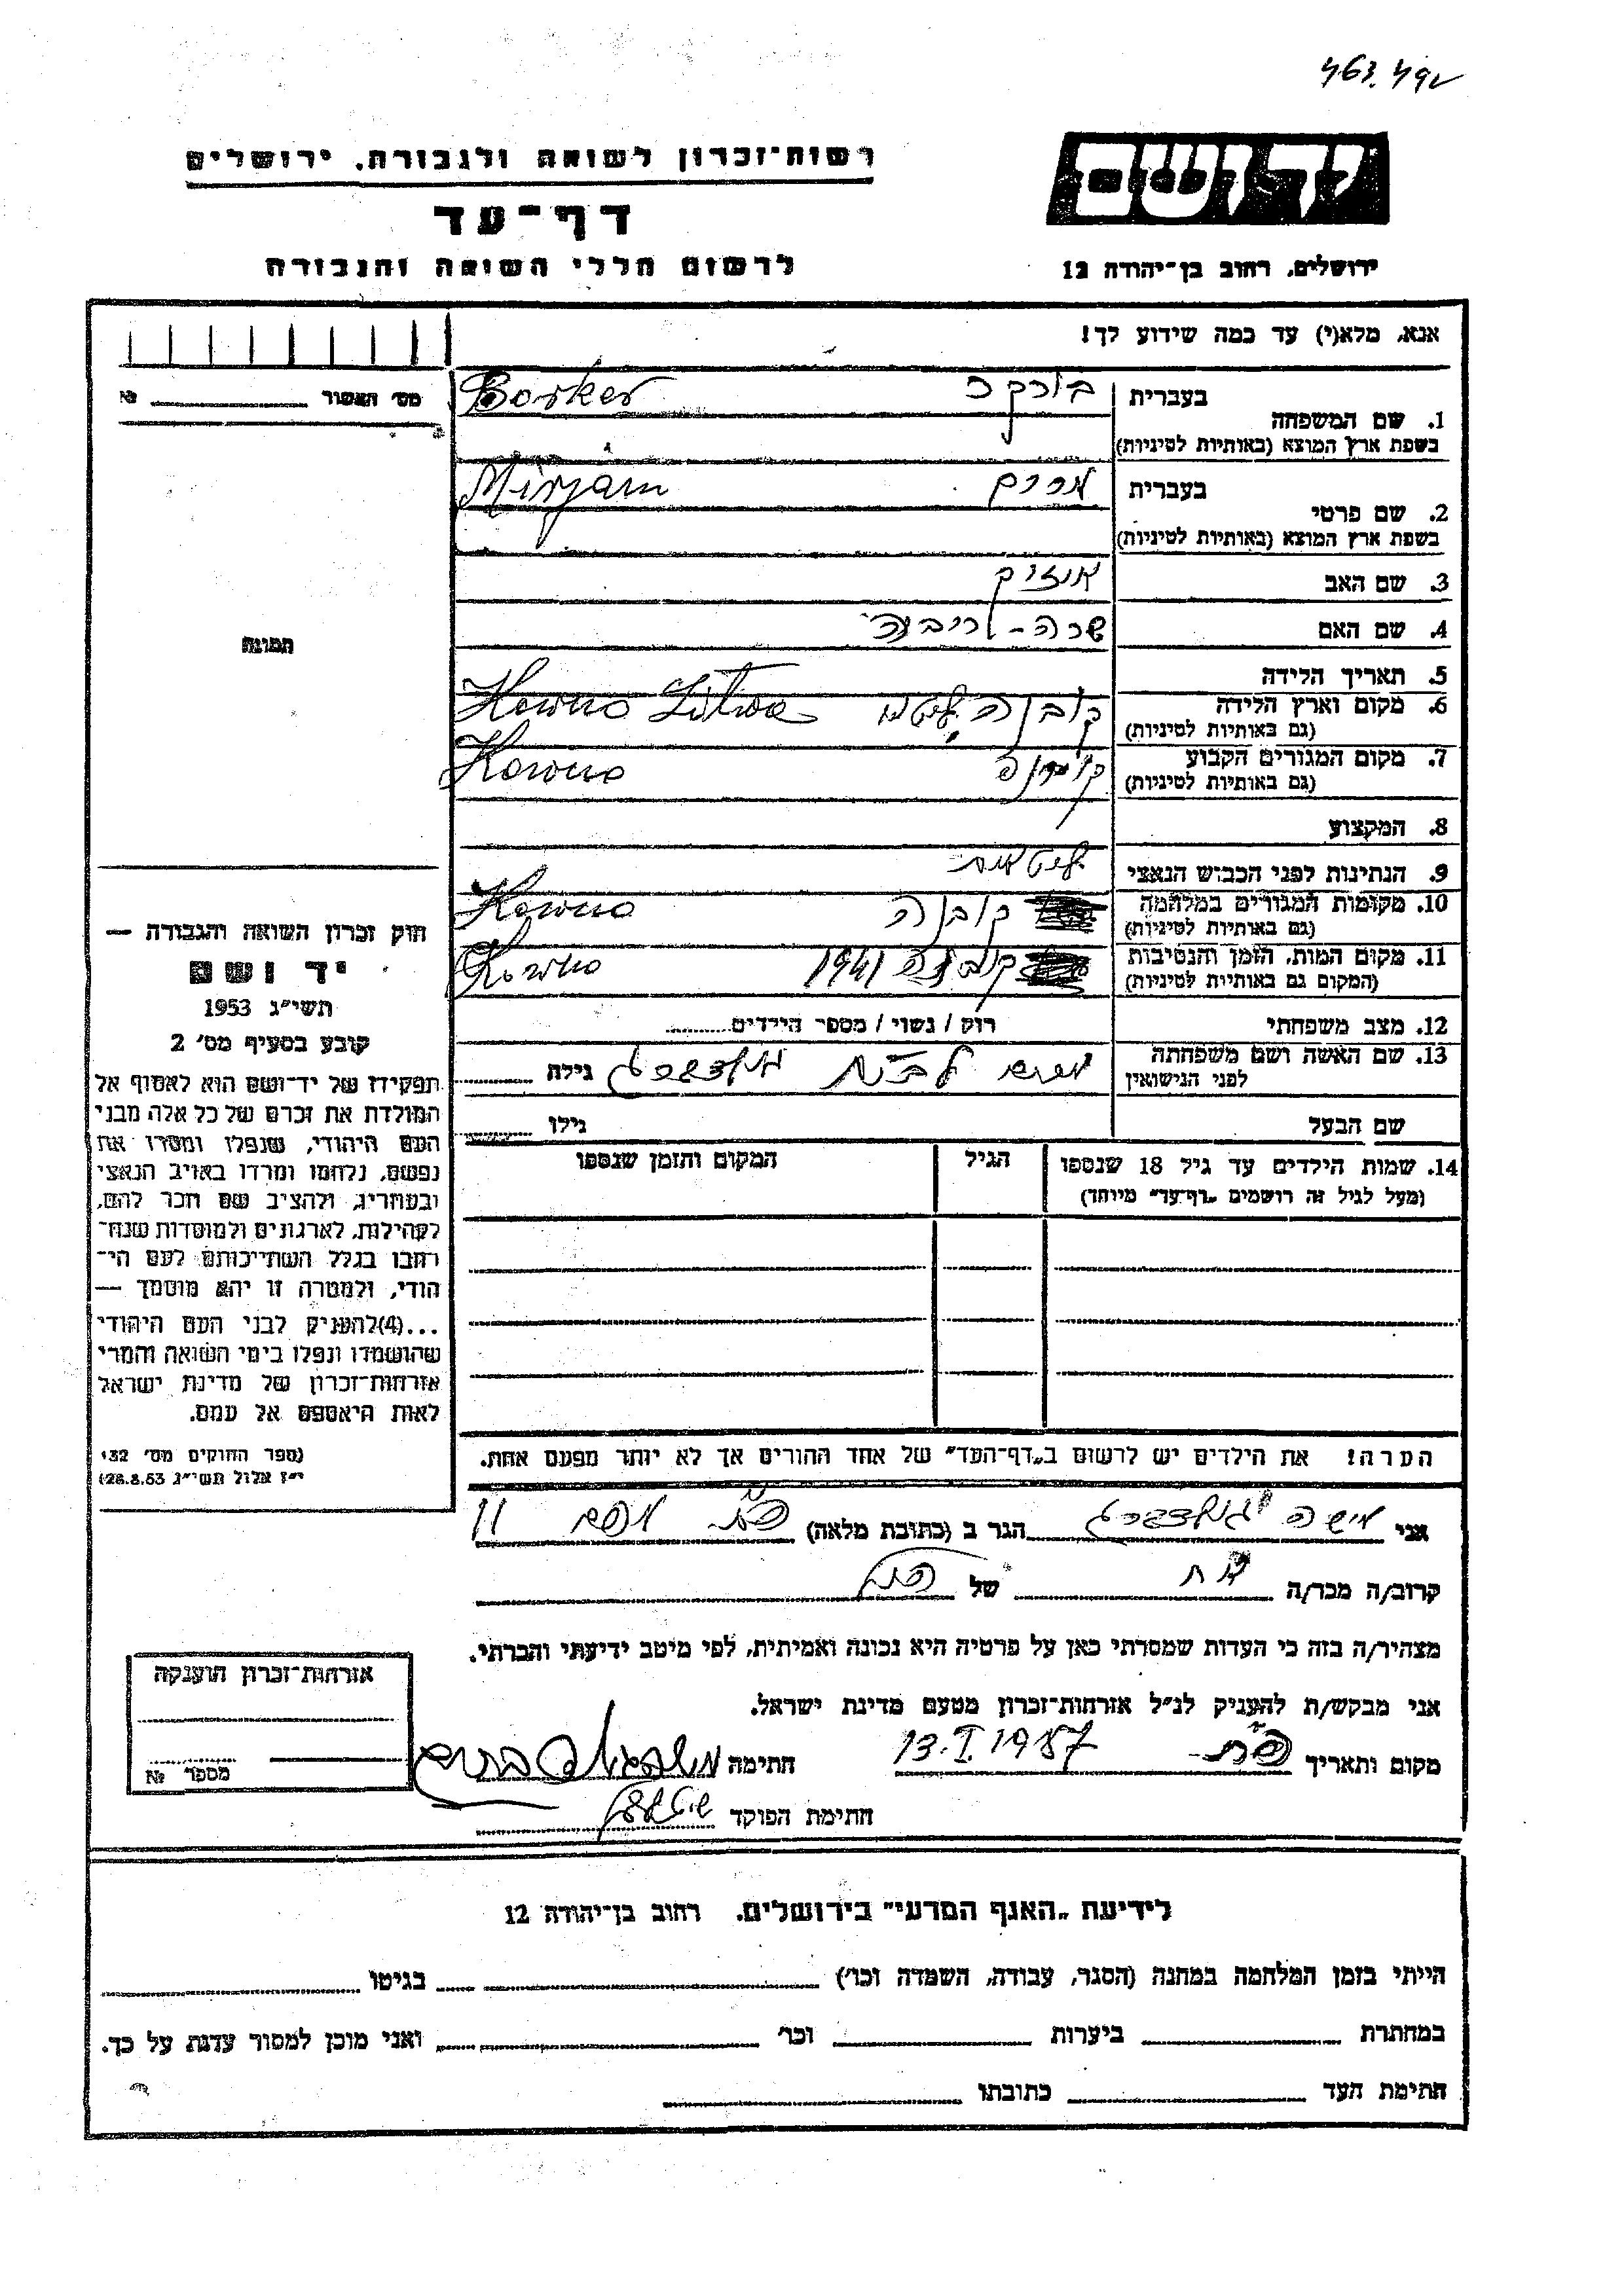 רשות־זכרון לשואה ולגבורה, ירושלים
דף־עד
לרשום חללי השואה והגבורה
יד ושם
ירושלים, רחוב בן־יהודה 12
אנא, מלא(י) עד כמה שידוע לך!
מס׳ האשור № 
1. שם המשפחה
בעברית בורקר
בשפת ארץ המוצא (באותיות לטיניות) Borker
2. שם פרטי
בעברית מרים
בשפת ארץ המוצא (באותיות לטיניות) Mirjam
3. שם האב אייזיק
4. שם האם שרה-
5. תאריך הלידה
6. מקום וארץ הלידה
(גם באותיות לטיניות) קובנה ליטא Kowno Litwa
7. מקום המגורים הקבוע
(גם באותיות לטיניות) קובנה Kowno
8. המקצוע
9. הנתינות לפני הכבוש הנאצי ליטאית
10. מקומות המגורים במלחמה
(גם באותיות לטיניות) קובנה Kowno
11. מקום המות, הזמן והנסיבות
(המקום גם באותיות לטיניות) קובנה 1941 Kowno
12. מצב משפחתי רוק / נשוי / מספר הילדים
13. שם האשה ושם משפחתה
לפני הנישואין מרים לבית גולדברג גילה
שם הבעל גילו
14. שמות הילדים עד גיל 18 שנספו הגיל המקום והזמן שנספו
(מעל לגיל זה רושמים „דף־עד״ מיוחד)
הערה! את הילדים יש לרשום ב„דף־העד״ של אחד ההורים אך לא יותר מפעם אחת.
תמונה
חוק זכרון השואה והגבורה —
יד ושם
תשי״ג 1953
קובע בסעיף מס׳ 2
תפקידו של יד־ושם הוא לאסוף אל
המולדת את זכרם של כל אלה מבני
העם היהודי, שנפלו ומסרו את
נפשם, נלחמו ומרדו באויב הנאצי
ובעוזריו, ולהציב שם וזכר להם,
לקהילות, לארגונים ולמוסדות שנח־
רבו בגלל השתייכותם לעם הי־
הודי, ולמטרה זו יהא מוסמך —
...(4)להעניק לבני העם היהודי
שהושמדו ונפלו בימי השואה והמרי
אזרחות־זכרון של מדינת ישראל
לאות היאספם אל עמם.
(ספר החוקים מס׳ 132
י״ז אלול תשי״ג 28.8.53)
אני משה גולדברג הגר ב (כתובת מלאה) פ״ת 11
קרוב/ה מכר/ה אח של הנ״ל
מצהיר/ה בזה כי העדות שמסרתי כאן על פרטיה היא נכונה ואמיתית, לפי מיטב ידיעתי והכרתי.
אני מבקש/ת להעניק לנ״ל אזרחות־זכרון מטעם מדינת ישראל.
מקום ותאריך פ״ת 13.I.1957 חתימה
חתימת הפוקד
אזרחות־זכרון הוענקה
מספר №
לידיעת „האגף המדעי״ בירושלים, רחוב בן־יהודה 12
הייתי בזמן המלחמה במחנה (הסגר, עבודה, השמדה וכו׳) בגיטו
במחתרת ביערות וכו׳ ואני מוכן למסור עדות על כך.
חתימת העד כתובתו